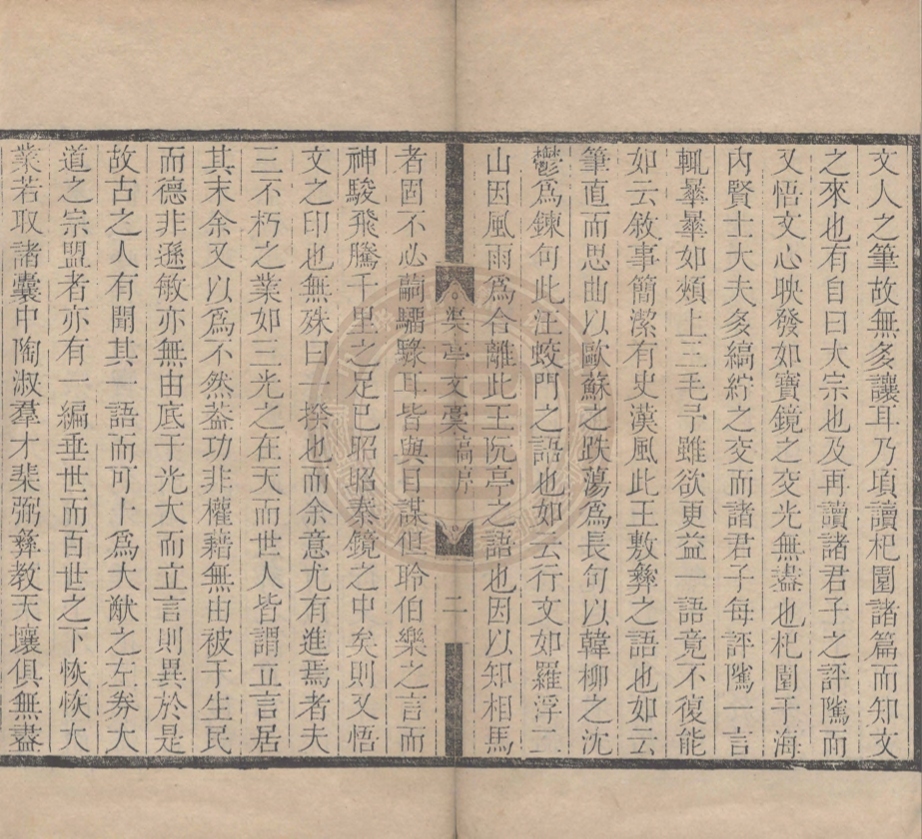 文人之筆故無多讓耳乃頃讀杞園諸篇而知文
之來也有自曰大宗也及再讀諸君子之評隲而
又悟文心映發如寶鏡之交光無盡也杞園于海
內賢士大夫多縞紵之交而諸君子每評隲一言
輒纍纍如頰上三毛予雖欲更益一語竟不復能
如云敘事簡潔有史漢風此王敷彝之語也如云
筆直而思曲以歐蘇之跌蕩爲長句以韓柳之沈
鬱爲鍊句此汪蛟門之語也如云行文如羅浮二
山因風雨爲合離此王阮亭之語也因以知相馬
渠亭文稾 高序 二
者固不必驌驦騄耳皆與目謀但聆伯樂之言而
神駿飛騰千里之足已昭昭秦鏡之中矣則又悟
文之印也無殊曰一揆也而余意尤有進焉者夫
三不朽之業如三光之在天而世人皆謂立言居
其末余又以爲不然葢功非權藉無由被于生民
而德非遜敏亦無由底于光大而立言則異於是
故古之人有聞其一語而可卜爲大猷之左券大
道之宗盟者亦有一編垂世而百世之下恢恢大
業若取諸囊中陶淑羣才棐弼彝教天壤俱無盡